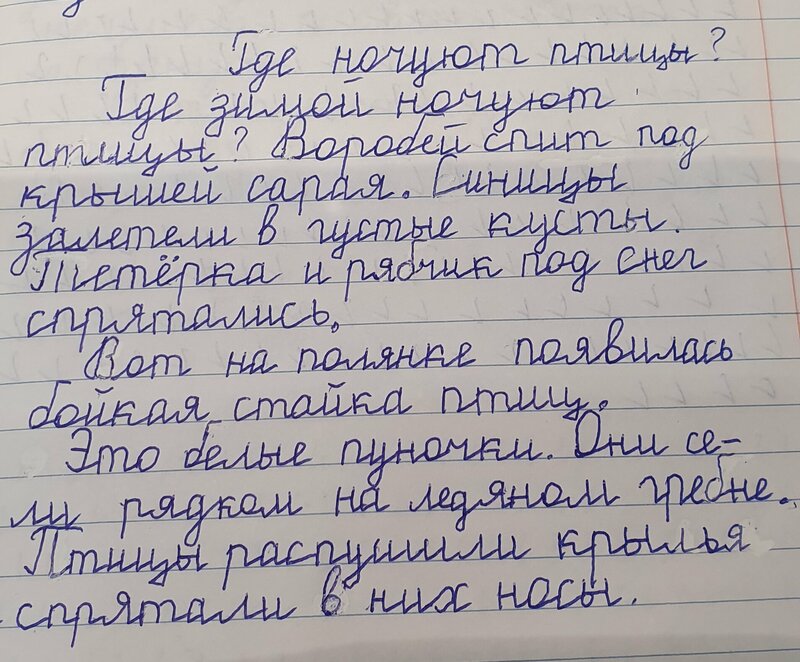 Где ночуют птицы?
Где зимой ночуют
птицы? Воробей спит под
крышей сарая. Синицы
залетели в густые кусты.
Тетёрка и рябчик под снег
спрятались.
Вот на полянке появилась
бойкая стайка птиц.
Это белые пуночки. Они се-
ли рядком на ледяном гребне.
Птицы распушили крылья
спрятали в них носы.